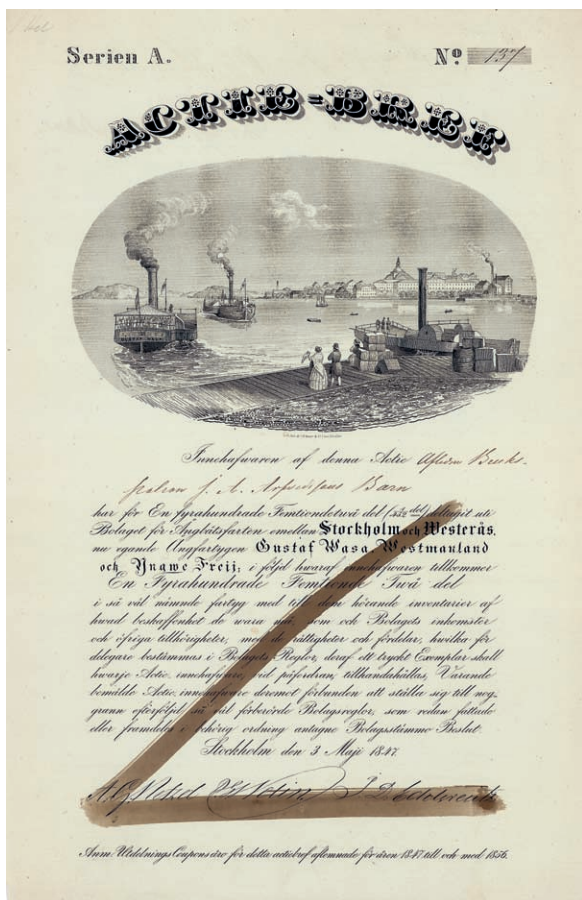 Serien A.
Nº 137
ACTIE=BREF
Innehafwaren af denna Actie Aflidne Bruks-
patron J. A. Barn
har för En fyrahundrade Femtiondetwå del deltagit uti
Bolaget för Ångbåtsfarten emellan Stockholm och Westerås,
nu egande Ångfartygen Gustaf Wasa, Westmanland
och Yngwe Freij; i följd hwaraf innehafwaren tillkommer
En Fyrahundrade Femtionde Twå del
i så väl nämnde fartyg med till dem hörande inventarier af
hwad beskaffenhet de wara må, som och Bolagets inkomster
och öfriga tillhörigheter, med de rättigheter och fördelar, hwilka för
delegare bestämmas i Bolagets Reglor, deraf ett tryckt Exemplar skall
hwarje Actie innehafware, vid påfordran, tillhandahållas, Varande
bemälde Actie innehafware deremot förbunden att ställa sig till nog-
grann efterföljd så väl förberörde Bolagsreglor, som redan fattade
eller framdeles i behörig ordning antagne Bolagsstämmo Beslut.
Stockholm den 3 Maji 1847.
Anm: Utdelnings Coupons äro för detta actiebref aflemnade för åren 1847 till och med 1856.